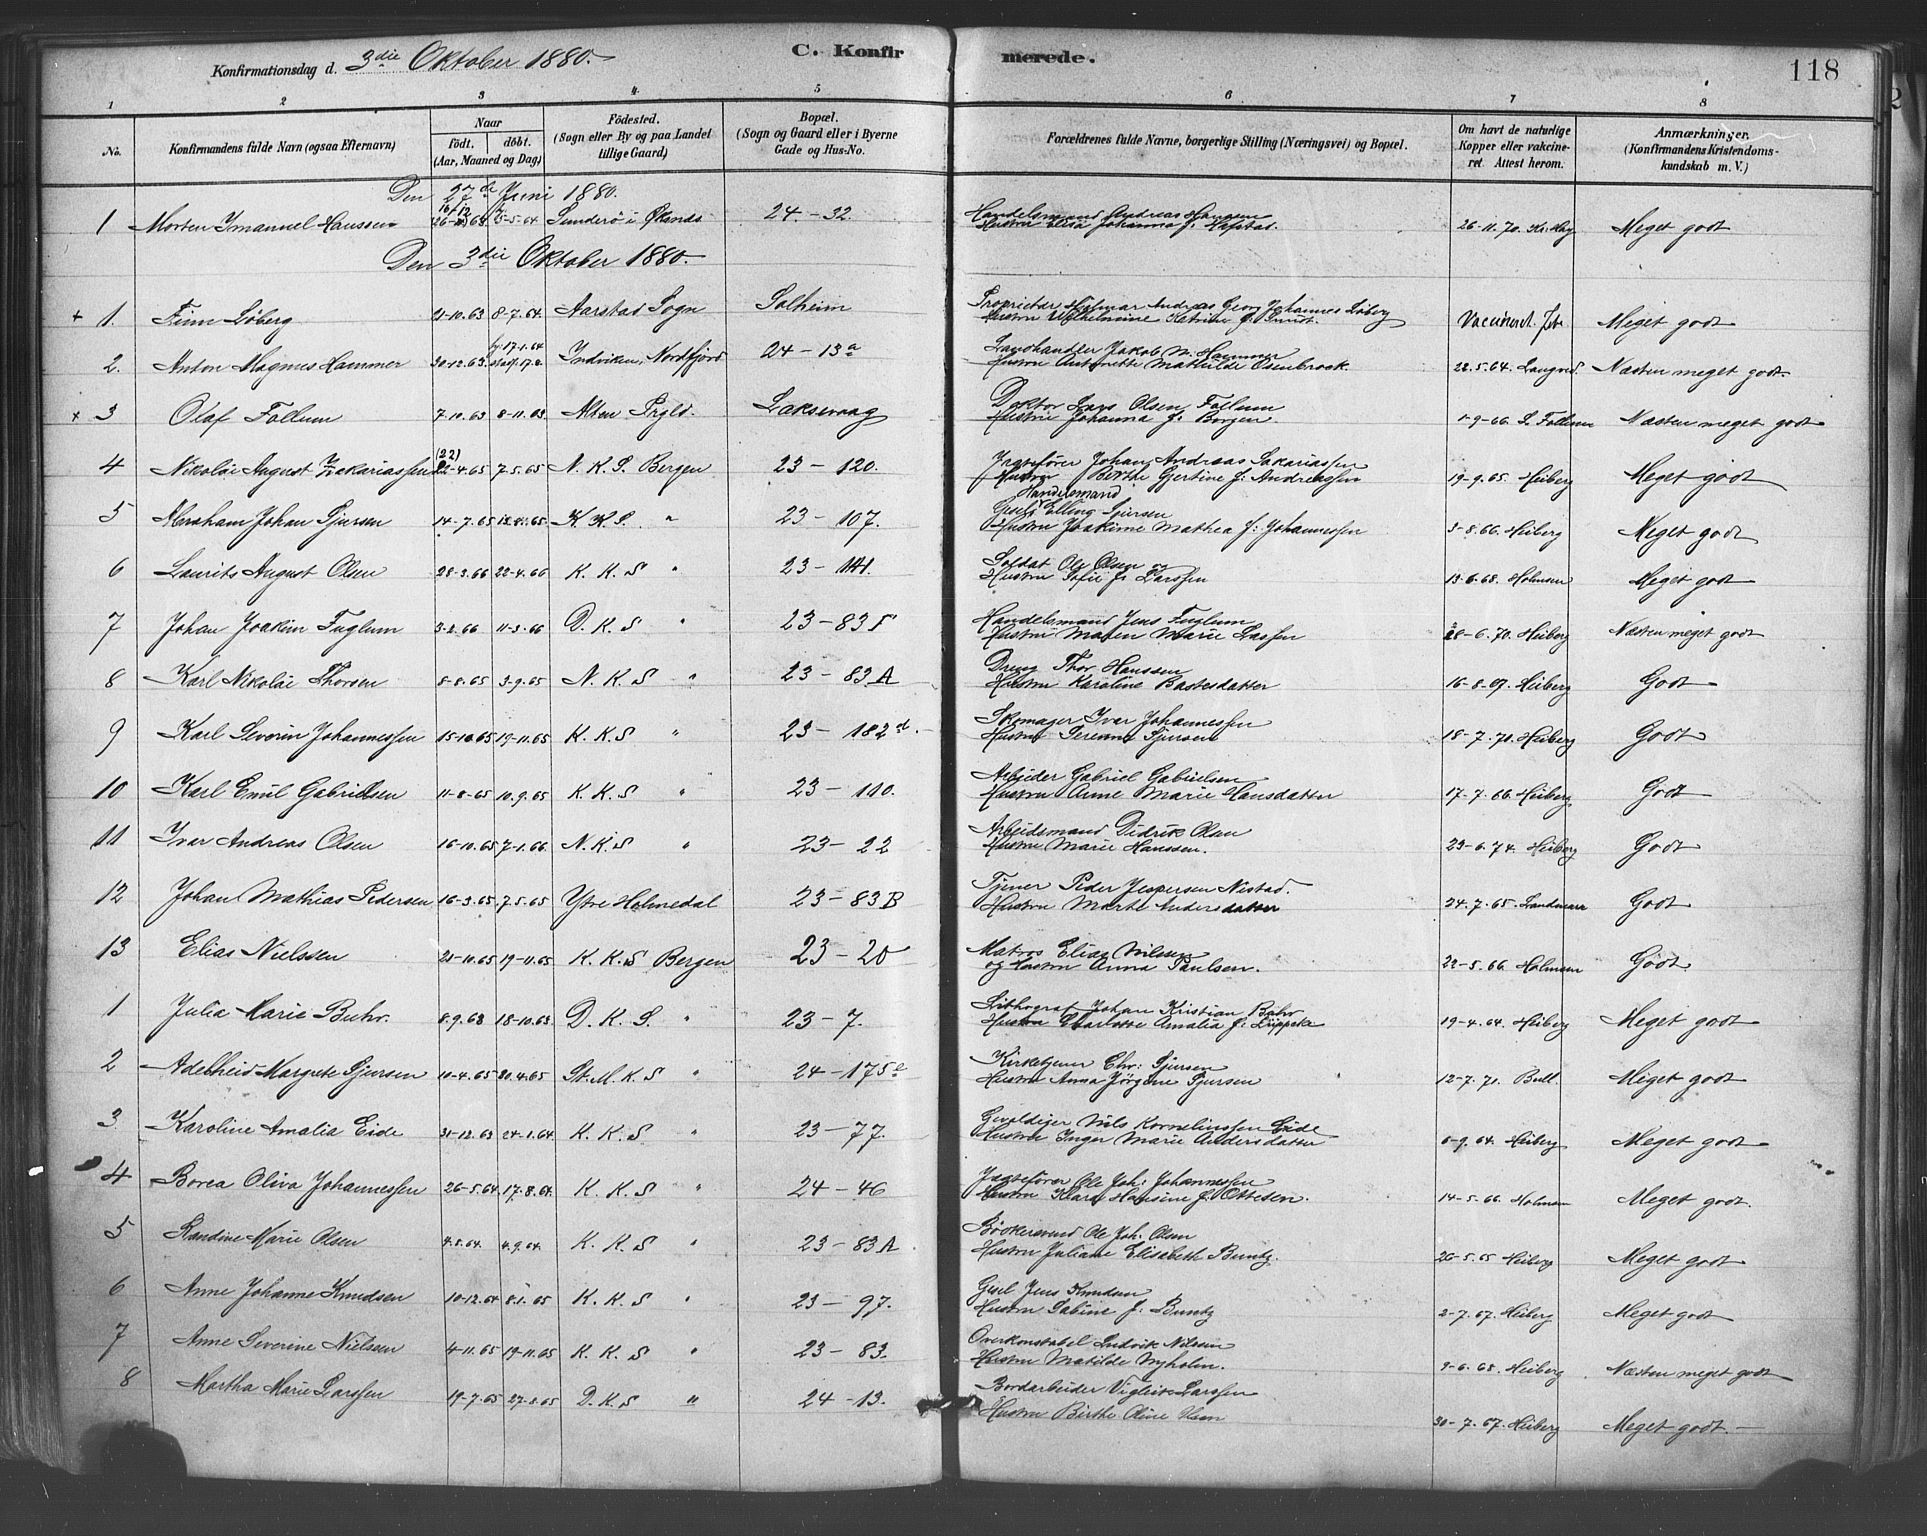 118
C. Konfirmerede.
Konfirmationsdag d. 3die Oktober 1880.
1 2 3 4 5 6 7 8
No. | Konfirmandens fulde Navn (ogsaa Efternavn) | Naar födt. döbt. (Aar, Maaned og Dag) | Födested. (Sogn eller By og paa Landet tillige Gaard) | Bopæl. (Sogn og Gaard eller i Byerne Gade og Hus-No. | Forældrenes fulde Navne, borgerlige Stilling (Næringsvei) og Bopæl. | Om havt de naturlige Kopper eller vakcineret. Attest herom. | Anmærkninger. (Konfirmandens Kristendomskundskab m. V.)
Den 27de Juni 1880.
1 Morten Imanuel Hanssen 5-5.64 Sunderö i Ökands 24-32 Handelsmand Andreas Hanssen
Hustru Elisa Johanna f. Hafstad. 26-11.70 Meget godt
Den 3die Oktober 1880.
+ 1. Finn Löberg 21-10.63 8-7.64. Aarstad Sogn Solheim Proprietær Hilmar Andreas Georg Johannes Löberg
Hustru Wilhelmine Katrine f. Smit. Vaccineret Meget godt
2. Anton Magnus Hammer 30-12.63 17-1.64 Indviken, Nordfjord 24-13a Landhandler Jakob M. Hammer
Hustru Antonette Mathilde Osenbrock. 22.5.64. Næsten meget godt.
+ 3 Olaf Follum 7-10.63 8-11.63 Alten Prgld. Laksevaag Doktor Lars Olsen Follum
Hustru Johanna f. Borgen. 1-9-66. L. Follum Næsten meget godt
4 Nikolai August Zakariassen (22) 22-4.65 7.5.65 N. K. S. Bergen 23-120. Jagtefører Johan Andreas Sakariassen
Hustru Berthe Gjertine f: Andreassen 19-9.65. Heiberg Meget godt
5 Abraham Johan Sjursen 14-7.65 K. K. S. " 23-107. Handelsmand
Elling Sjursen
Hustru Joakime Mathea f: Johannessen 3-8.66. Heiberg Meget godt
6 Laurits August Olsen 28-3.66 22-4.66 K. K. S " 23-141. Soldat Ole Olsen og
Hustru Sofie f. Larssen 13-6.68. Holmsen Meget godt
7 Johan Joakim Fuglum 3-2.66 11-3.66 D. K. S " 23-83F Handelsmand Jens Fuglum
Hustru Maren Marie Lassen 28-6.70. Heiberg Næsten meget godt
8 Karl Nikolai Thorsen 8-8.65 3-9.65 N. K. S " 23-83A Dreng Thor Hanssen
Hustru Karoline Bastesdatter 16-8.67. Heiberg Godt
9 Karl Severin Johannessen 15-10.65 19-11.65 K. K. S " 23-182d. Skomager Ivar Johannessen
Hustru Serenna Sjursen 18-7.70. Heiberg Godt
10 Karl Emil Gabrielsen 11-8.65 10.9.65 K. K. S " 23-110. Arbeider Gabriel Gabrielsen
Hustru Anne Marie Hansdatter 17-7.66. Heiberg Godt
11 Ivar Andreas Olsen 16-10.65 7-1.66. N. K. S " 23-22 Arbeidsmand Didrik Olsen
Hustru Marie Hanssen. 23-6.74. Heiberg Godt
12 Johan Mathias Pedersen 16-3.65 7.5.65 Ytre Holmedal 23-83B Tjener Peder Jespersen Nistad.
Hustru Marte Andersdatter 24.7.65. Landmark Godt
13 Elias Nielssen 21-10.65 19-11.65 K. K. S Bergen 23-20 Matros Elias Nilssen
og Hustru Anna Paulsen. 22-5.66. Holmsen Godt
1 Julia Marie Buhr. 8.9.63 18-10.63. D. K. S. " 23-7. Lithograf Johan Kristian Bahr
Hustru Charlotte Amalia f. Lüppcke 19-4.64. Heiberg Meget godt
2 Adelheid Margrete Sjursen 10-4.65 30.4.65 St. M. K. S " 24-175e Kirketjener Chr: Sjursen
Hustru Anna Jørgine Sjursen 12-7.70. Bull Meget godt
3 Karoline Amalia Eide 31-12.63 24-1.64. K. K. S " 23-77. Gevaldiger Nils Kornelinssen Eide
Hustru Inger Marie Andersdatter 6-9.64. Heiberg Meget godt
4 Borea Oliva Johannessen 26-5.64 17.8.64. K. K. S " 24-46 Jagtefører Ole Joh: Johannessen
Hustru Klara Hansine f. Ottesen. 14-5.66. Holmsen Meget godt.
5 Randine Marie Olsen 4.8.64. 4.9.64. K. K. S " 23-83A Bödkersvend Ole Joh. Olsen
Hustru Juliane Elisabeth Buntz. 26-5.65 Heiberg Meget godt
6 Anne Johanne Knudsen 10-12.64 8.1.65 K. K. S " 23-97. Gesel Jens Knudsen
Hustru Sabine f. Buntz 2-7.67. Heiberg Meget godt
7 Anne Severine Nielssen 4-11.65 19-11.65 K. K. S " 23-83. Overkonstabel Ludvik Nilssen
Hustru Matilde Nyholm. 9-6.68. Heiberg Næsten meget godt
8 Martha Marie Larssen 19-7.65 27-8.65 D. K. S " 24-13. Bordarbeider Vigleik Larssen
Hustru Birthe Oline 30-7.67. Heiberg Meget godt.